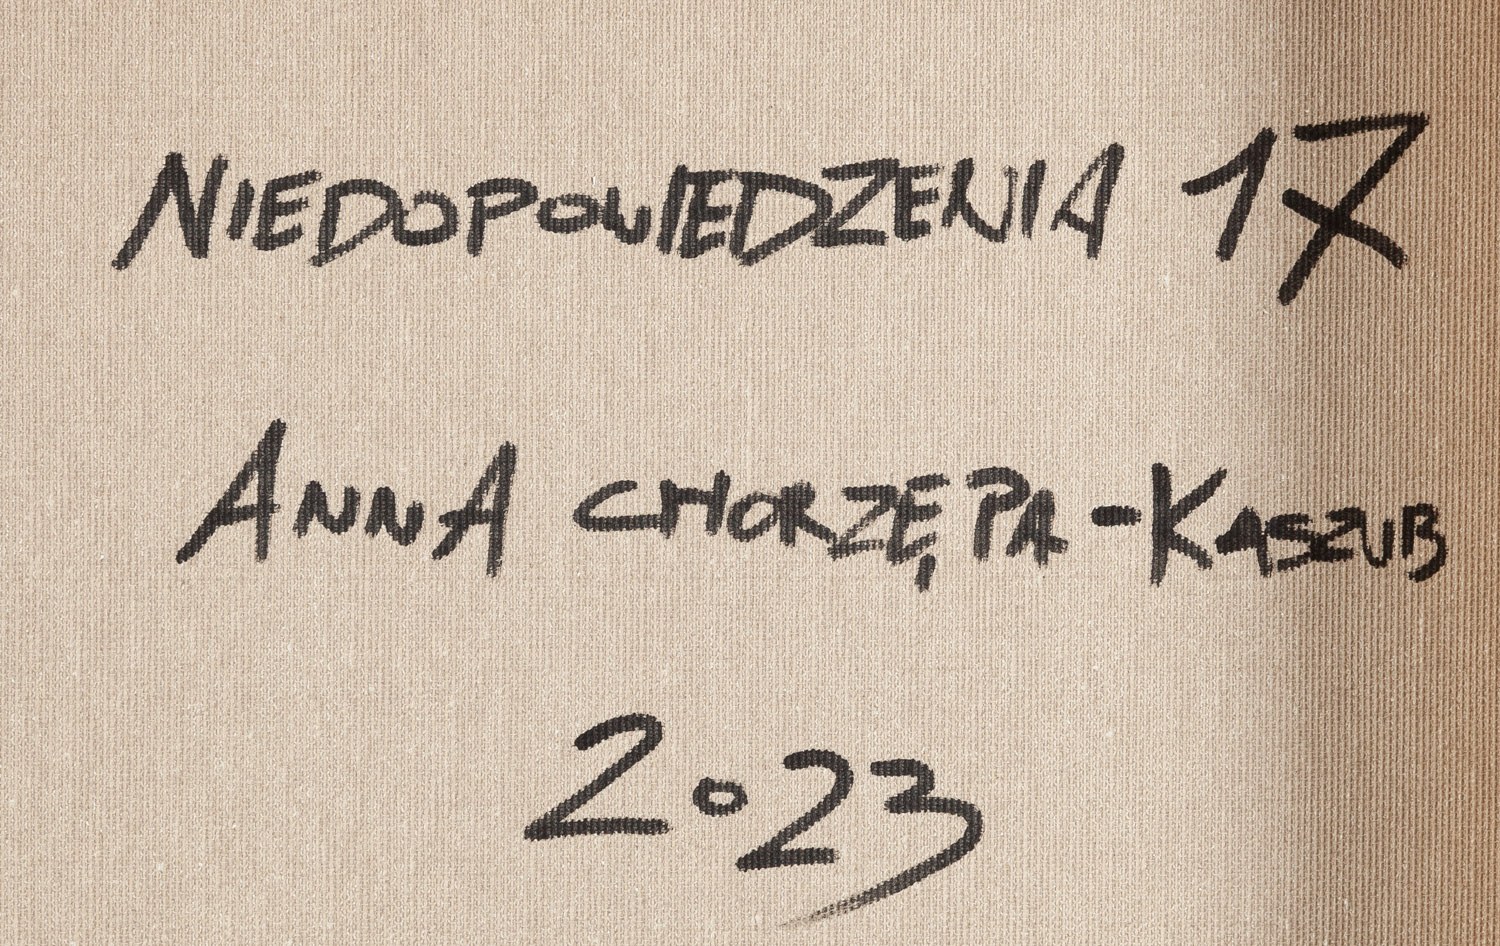 NIEDOPOWIEDZENIA 17
ANNA CHORZĘPA-KASZUB
2023